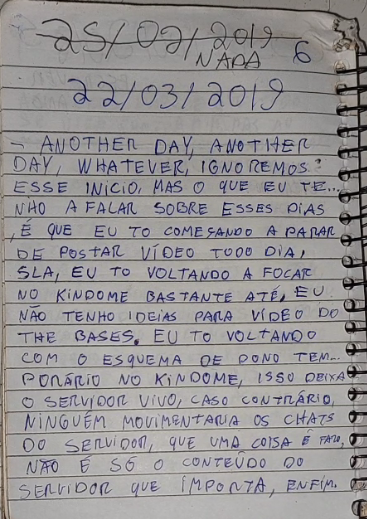 25/02/2019
NADA 6
22/03/2019
- ANOTHER DAY, ANOTHER
DAY, WHATEVER, IGNOREMOS
ESSE INÍCIO, MAS O QUE EU TE...
NHO A FALAR SOBRE ESSES DIAS
, É QUE EU TO COMEÇANDO A PARAR
DE POSTAR VÍDEO TODO DIA,
SLA, EU TO VOLTANDO A FOCAR
NO KINDOME BASTANTE ATÉ, EU
NÃO TENHO IDEIAS PARA VÍDEO DO
THE BASES. EU TO VOLTANDO
COM O ESQUEMA DE DONO TEM...
PORÁRIO NO KINDOME, ISSO DEIXA
O SERVIDOR VIVO, CASO CONTRÁRIO,
NINGUÉM MOVIMENTARIA OS CHATS
DO SERVIDOR, QUE UMA COISA É FATO,
NÃO É SÓ O CONTEÚDO DO
SERVIDOR QUE IMPORTA, ENFIM.